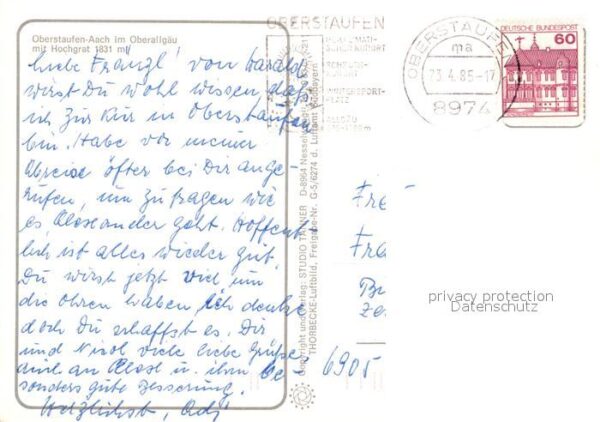 Oberstaufen-Aach im Oberallgäu
mit Hochgrat 1831 m
Liebe Fränzl! Von Harald
wirst Du wohl wissen daß
ich zur Kur in Oberstaufen
bin. Habe vor meiner
Abreise öfter bei Dir ange-
rufen, um zu fragen wie
es Alexander geht. Hoffent-
lich ist alles wieder gut.
Du wirst jetzt viel um
die Ohren haben, ich denke
doch Du schaffst es. Dir
und Nicol viele liebe Grüße
auch an Alex u. ihm be-
sonders gute Besserung.
Herzlichst,
Copyright und Verlag: STUDIO TANNER D-8964 Nesselwang
THORBECKE-Luftbild, Freigabe-Nr. G-5/6274 d. Luftamt Südbayern
OBERSTAUFEN
OBERSTAUFEN
ma
23.4.85-17
8974
DEUTSCHE BUNDESPOST
60
Fra
6905
privacy protection
Datenschutz